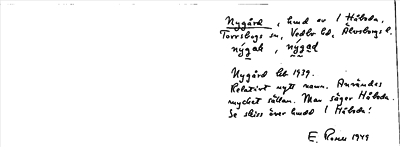 Nygård, hmd av 1 Håbol,
Torrskogs sn, Vedbo hd, Älvsborgs l.
nýgaḷ, nýgad
Nygård bt 1939.
Relativt nytt namn. Användes
mycket sällan. Man säger Håbol.
Se skiss över hmd 1 Håbol!
E. 1949